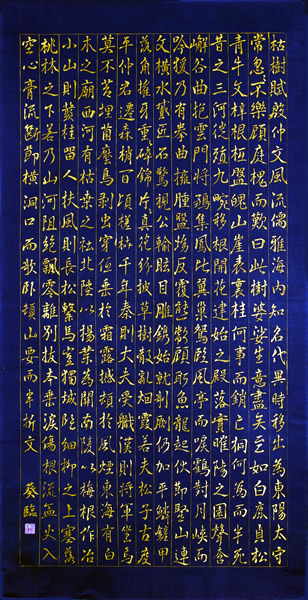 枯樹賦殷仲文風流儒雅海內知名代異時移出為東陽太守
常忽不樂顧庭槐而歎曰此樹婆娑生意盡矣至如白鹿貞松
青牛文梓根柢盤魄山崖表裏桂何事而銷亡桐何為而半死
昔之三河徙殖九畹移根開花建始之殿落實睢陽之園聲含
嶰谷曲抱雲門將鶵集鳳比翼巢鴛臨風亭而唳鶴對月峽而
吟猨乃有拳曲擁腫盤坳反覆熊彪顧盼魚龍起伏節竪山連
文橫水蹙匠石驚視公輸眩目雕鐫始就剞劂仍加平鱗鏟甲
落角摧牙重碎錦片真花紛披草樹散亂烟霞若夫松子古度
平仲君遷森梢百頃槎枿千年秦則大夫受職漢則將軍坐焉
莫不苔埋菌壓鳥剝蟲穿低垂於霜露撼頓於風煙東海有白
木之廟西河有枯桑之社北陸以揚葉為關南陵以梅根作冶
小山則叢桂留人扶風則長松繫馬豈獨城臨細柳之上塞落
桃林之下若乃山河阻絕飄零離別拔本垂淚傷根流血火入
空心膏流斷節橫洞口而欹臥頓山要而半折文 葵臨